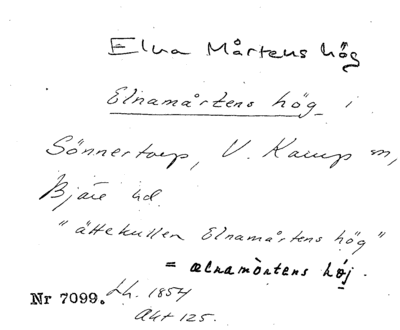 Elna Mårtens hög
Elnamårtens hög i
Sönnertorp, V. Karup sn,
Bjäre hd.
"ättekullen Elnamårtens hög"
= ælnamòrtens høj.
Nr 7099. Lh. 1854
Akt 125.